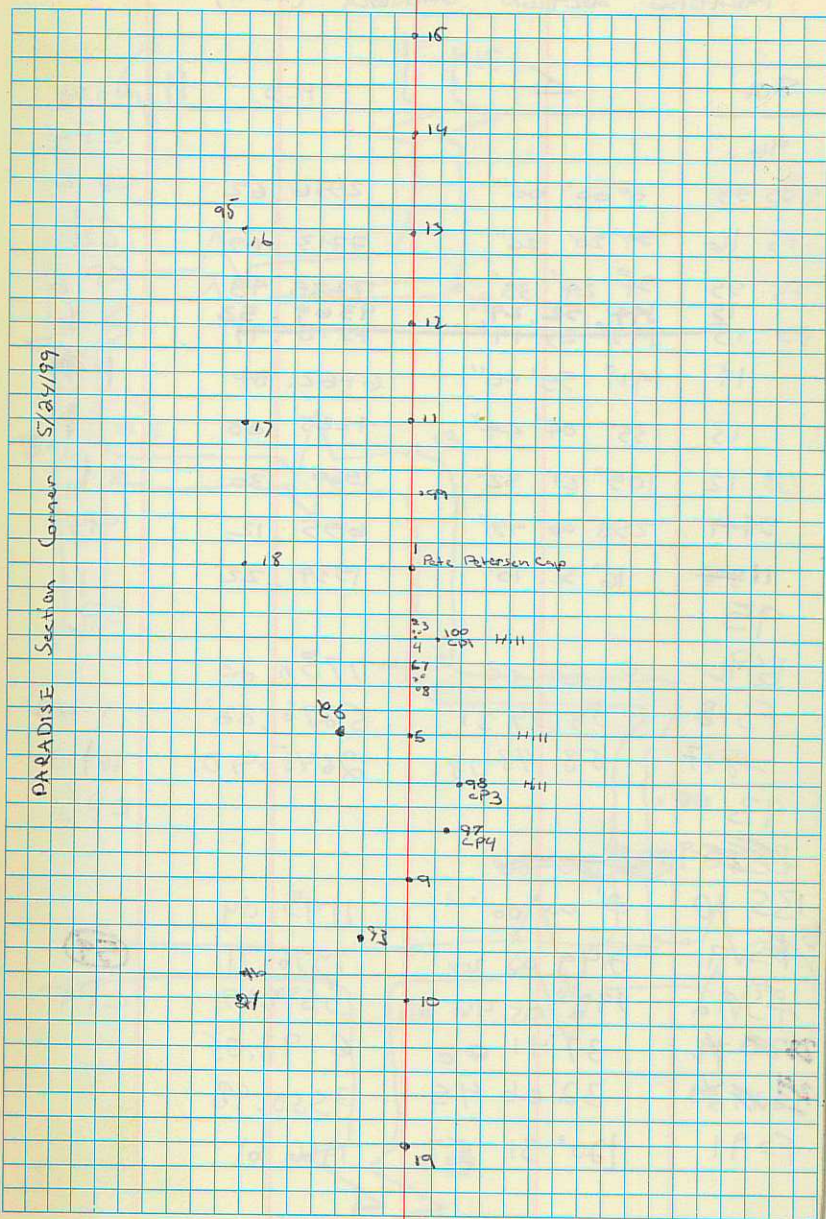 PARADISE Section Corner 5/24/99
15
14
95
16
13
12
17
11
99
1
Pete Petersen Cap
18
23
4
100
CP1
Hill
67
8
5
Hill
98
CP3
Hill
97
CP4
9
93
21
10
19